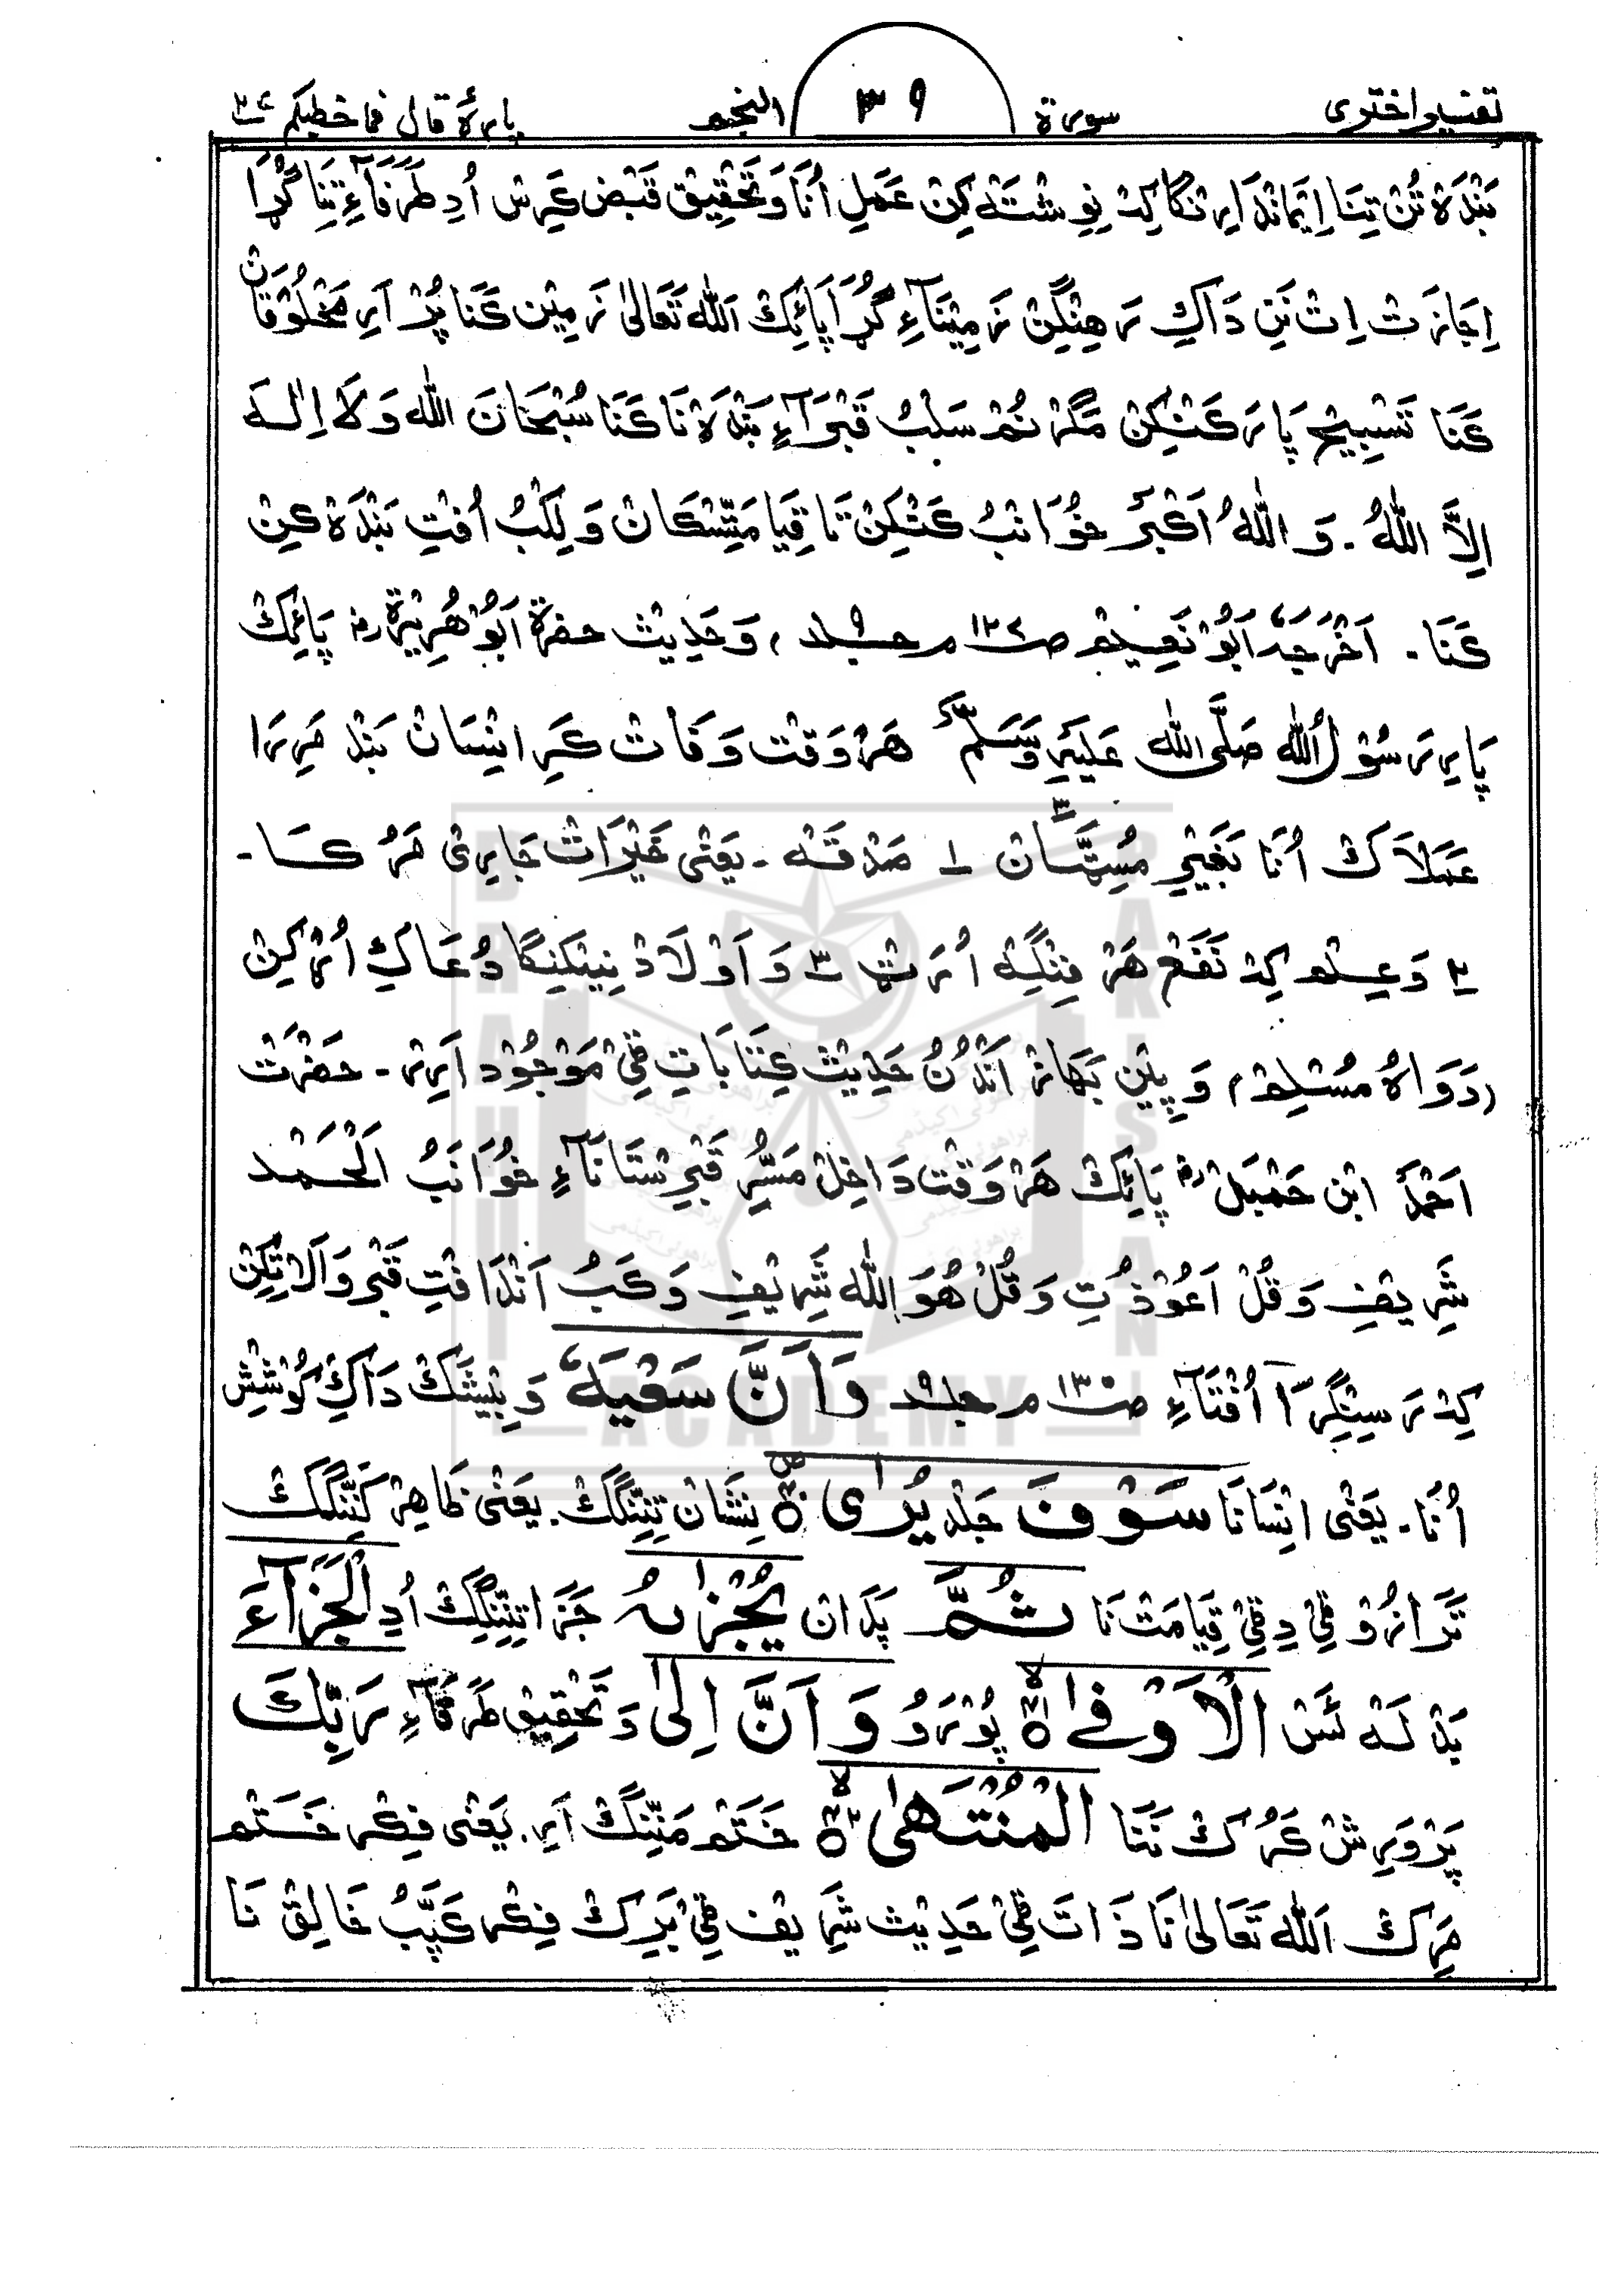 تفسیر اختری سورة ٣٩ النجم پارۀ قال فما خطبکم ٢٧
بَنْدَهْ ئن تِنَا اِیْمَانْدَارِ نکا کِہ نِوِشْتَہ کِن عَمَلِ اُنَا وَ تَحْقِیْق قَبْض کَرِس اُدِ طَرَفَآءِ تِنَا گُڑَا
اِجَازَت اِت نَنِ دَاکِ رَهِنْگِن زَمِیْنَآءِ گُڑَا پَائِکْ اَللّٰه تَعَالٰی زَمِیْن کَنَا پُرْ اَرِ مَخْلُوْقَان
کَنَا تَسْبِیْح پَارَ کَنْکِنْ مَگَرْ نُمْ سَلِبُ قَبْرَآءِ بَنْدَهْ نَا کَنَا سُبْحَانَ اللّٰه وَلَا اِلٰهَ
اِلَّا اللّٰهُ ۔ وَ اللّٰهُ اَکْبَر خُوَانْبُ کَنْکِنْ تَا قِیَامَتِسْکَانْ وَ لِکْبُ اُفْتِ بَنْدَهْ کِنْ
کَنَا ۔ اَخْرَجَهٗ اَبُوْ نَعِیْم صـ١٣٧ مـ جـلد٩ ، وَ حَدِیْث حضرة اَبُوْ هُرَیْرَة رض پَائِکْ
پَارِ رَسُوْلُ اللّٰه صَلَّی اللّٰه عَلَیْهِ وَسَلَّمَ هَرْ وَقْت وَفَاتْ کَرِ اِنْسَانْ بَنْد مَرِرَا
عَمَلَاکْ اُنَا بَغَیْرِ مُسِٹَّانْ ١ صَدْقَہ ۔ یَعْنِی خَیْرَاتْ جَارِی مَرُ کَا ۔
٢ وَ عِلْم کِہ نَفَعْ هَرْ فِنْگِہ اُرَتْ ٣ وَ اَوْلَادْ نِیْکِنْگَا دُعَاکِ اُرْکِنْ
(رَوَاهُ مُسْلِم) وَ پِیْن بَهَازْ اَنْدُنُ حَدِیْث کِتَابَاتِ ٹِیْ مَوْجُوْد اَرِر ۔ حَضْرَتْ
اَحْمَدْ ابْن حَمْبَل رح پَائِکْ هَرْ وَقْت دَاخِلْ مَسُّرِ قَبْرِسْتَانَآءِ خُوَانَبُ اَلْحَمْد
شَرِیْفِ وَ قُلْ اَعُوْذُ تِ وَ قُلْ هُوَ اللّٰه شَرِیْفِ وَ کَبُ اَنْدَافْتِ قَبْرِ وَالَاتِکِنْ
کِہ رَسِیْنْگِرَا اُفْتَآءِ صـ١٣٠ مـ جـلد٩ وَ اَنَّ سَعْیَهٗ وَ بِیْشَکْ دَاکِ کُوْشِشْ
اُنَا ۔ یَعْنِی اِنْسَانَا سَوْفَ جَلْد یُرٰی نِشَانْ تِنِنْگَکْ ۔ یَعْنِی ظَاهِرْ کَنِّنْگَکْ
تَرَازُوْ ٹِیْ دِٹِیْ قِیَامَتْ نَا ثُمَّ پَدَانْ یُجْزٰىهُ جَزَا تِنِنْگِکْ اُدِ الْجَزَآءَ
بَدْلَہ ئَسْ الْاَوْفٰی پُوْرَوُ وَ اَنَّ اِلٰی وَ تَحْقِیْق طَرَفَآءِ رَبِّكَ
پَرْوَرِشْ کَرُکْ نَنَا الْمُنْتَهٰی خَتَمْ مَنِّنْگ اَرِ ۔ یَعْنِی فِکْر خَتَم
مَرِکْ اَللّٰه تَعَالٰی نَا ذَاتَ ٹِیْ حَدِیْث شَرِیْف ٹِیْ بَرِکْ فِکْر کَپَّبُ خَالِقْ نَا
BRAHUI
ACADEMY
PAKISTAN